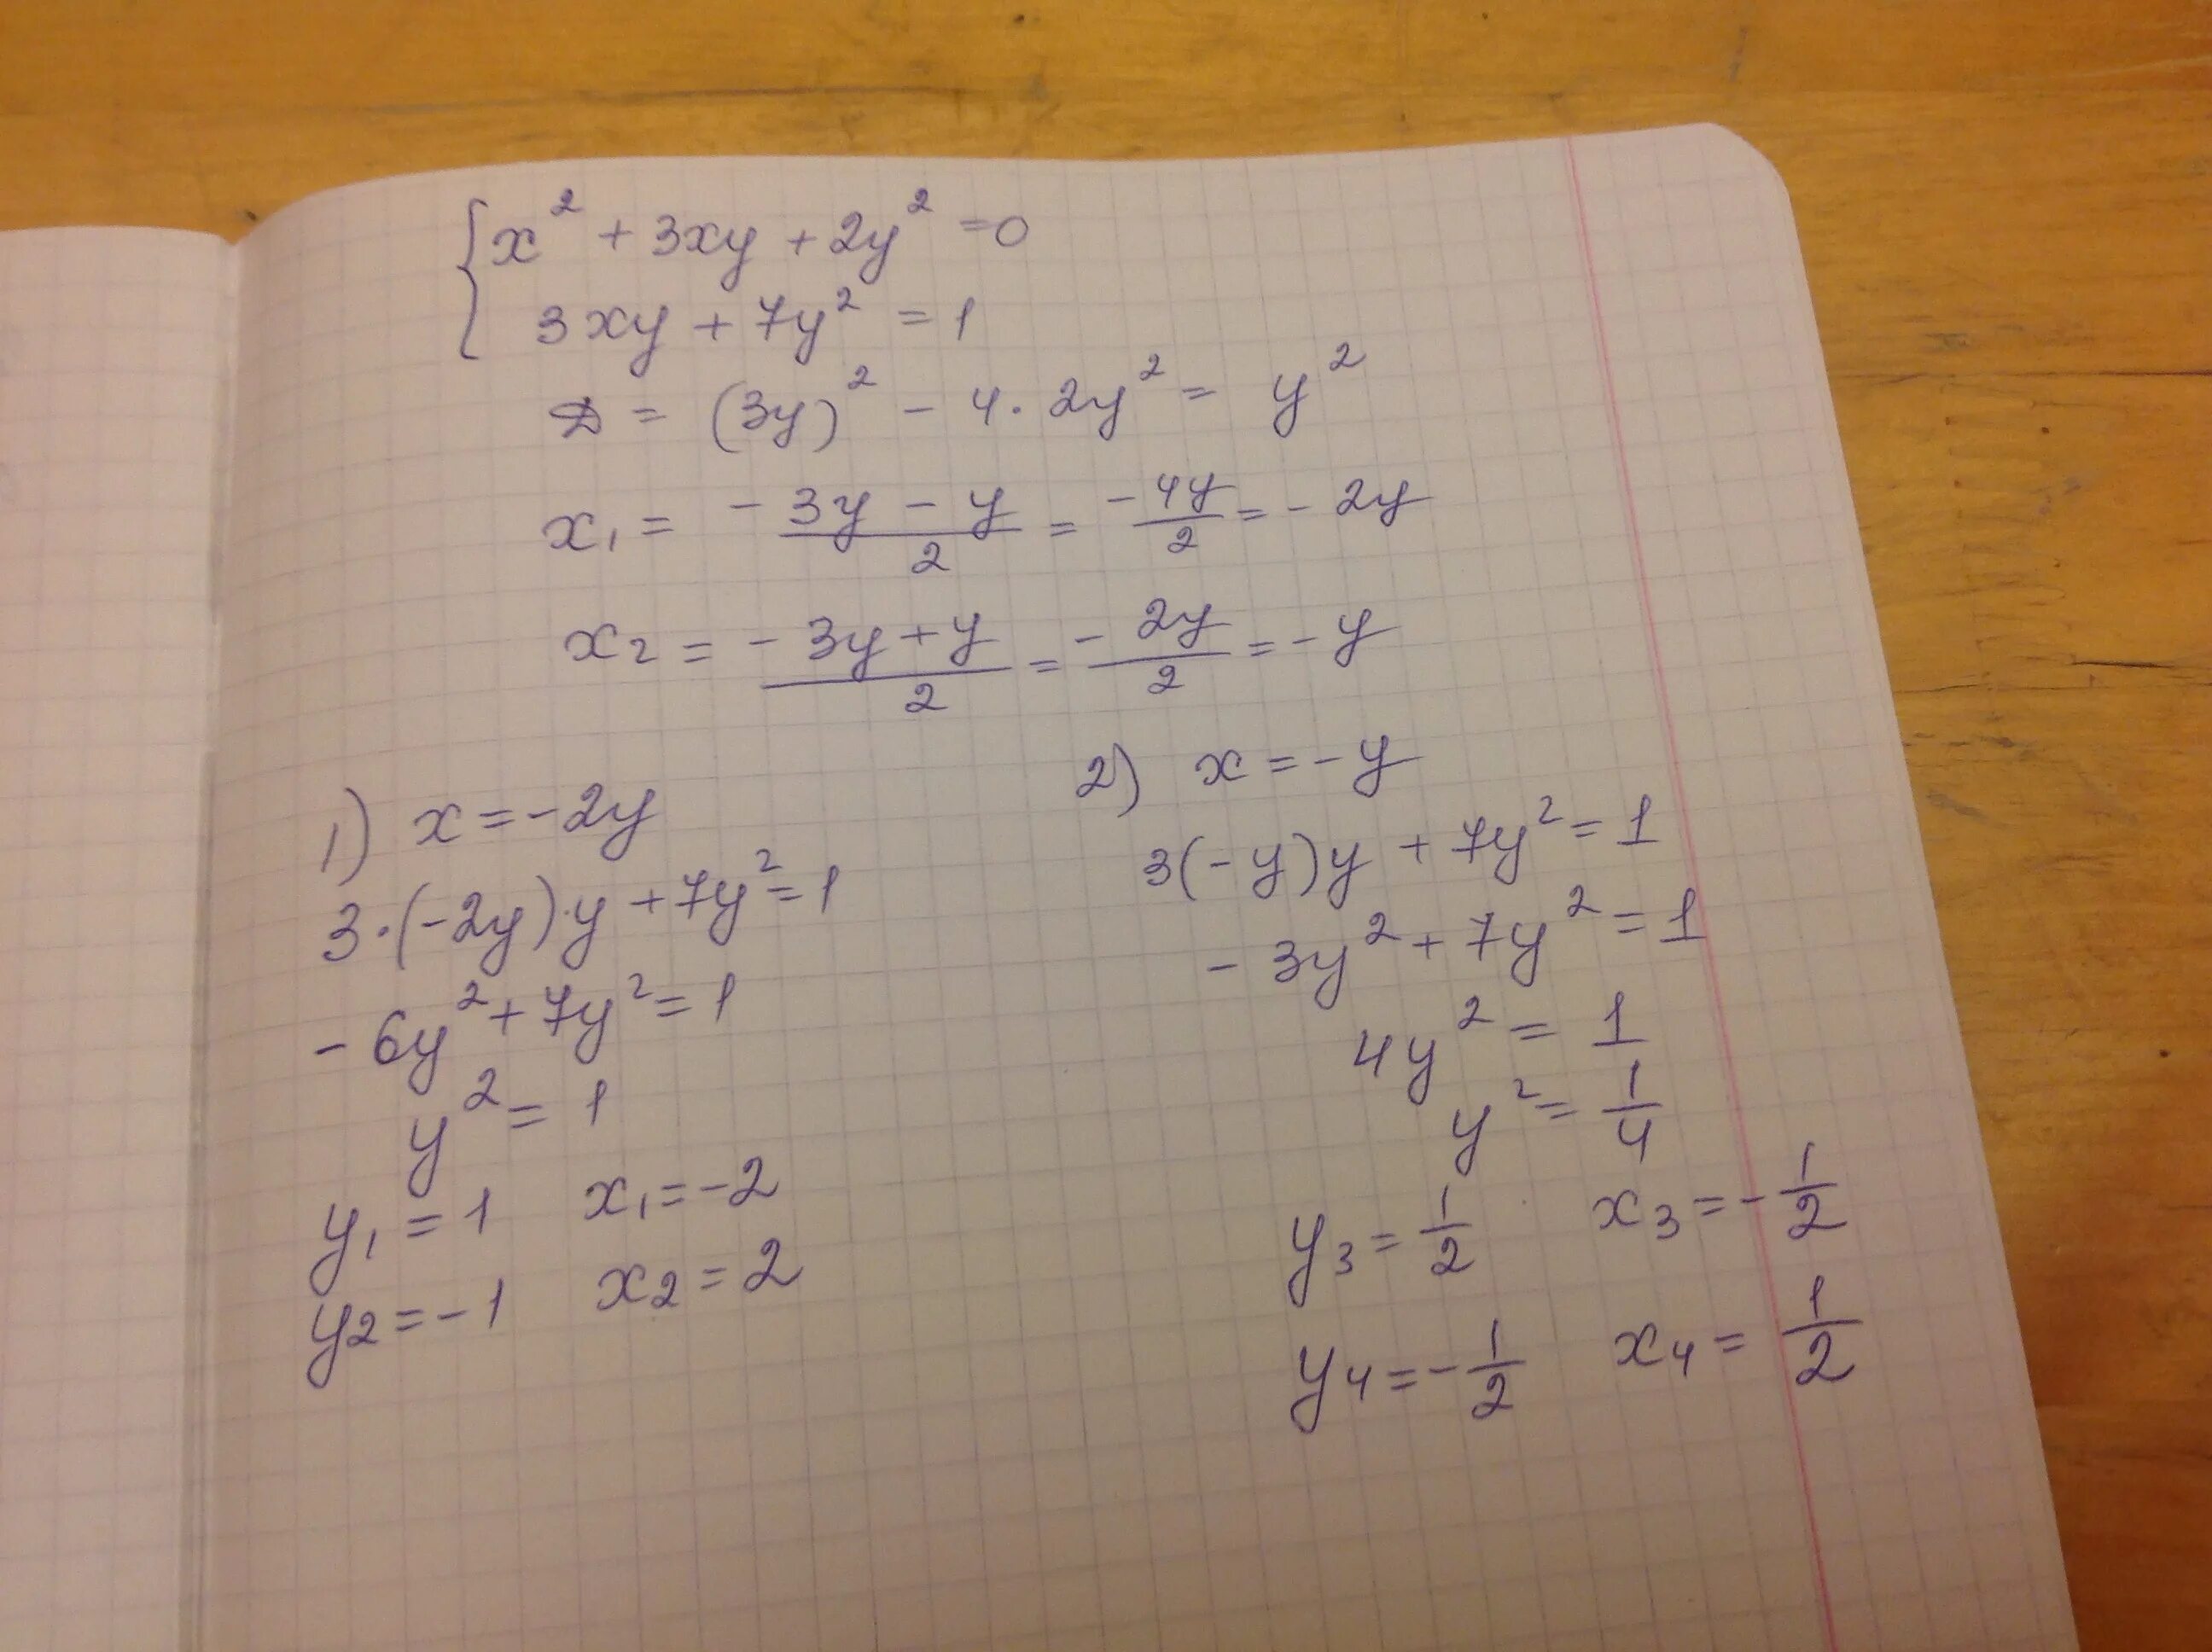 { x² + 3xy + 2y² = 0
3xy + 7y² = 1
D = (3y)² - 4 · 2y² = y²
x₁ = (-3y - y)/2 = -4y/2 = -2y
x₂ = (-3y + y)/2 = -2y/2 = -y
1) x = -2y
3·(-2y)·y + 7y² = 1
-6y² + 7y² = 1
y² = 1
y₁ = 1 x₁ = -2
y₂ = -1 x₂ = 2
2) x = -y
3(-y)y + 7y² = 1
-3y² + 7y² = 1
4y² = 1
y² = 1/4
y₃ = 1/2 x₃ = -1/2
y₄ = -1/2 x₄ = 1/2